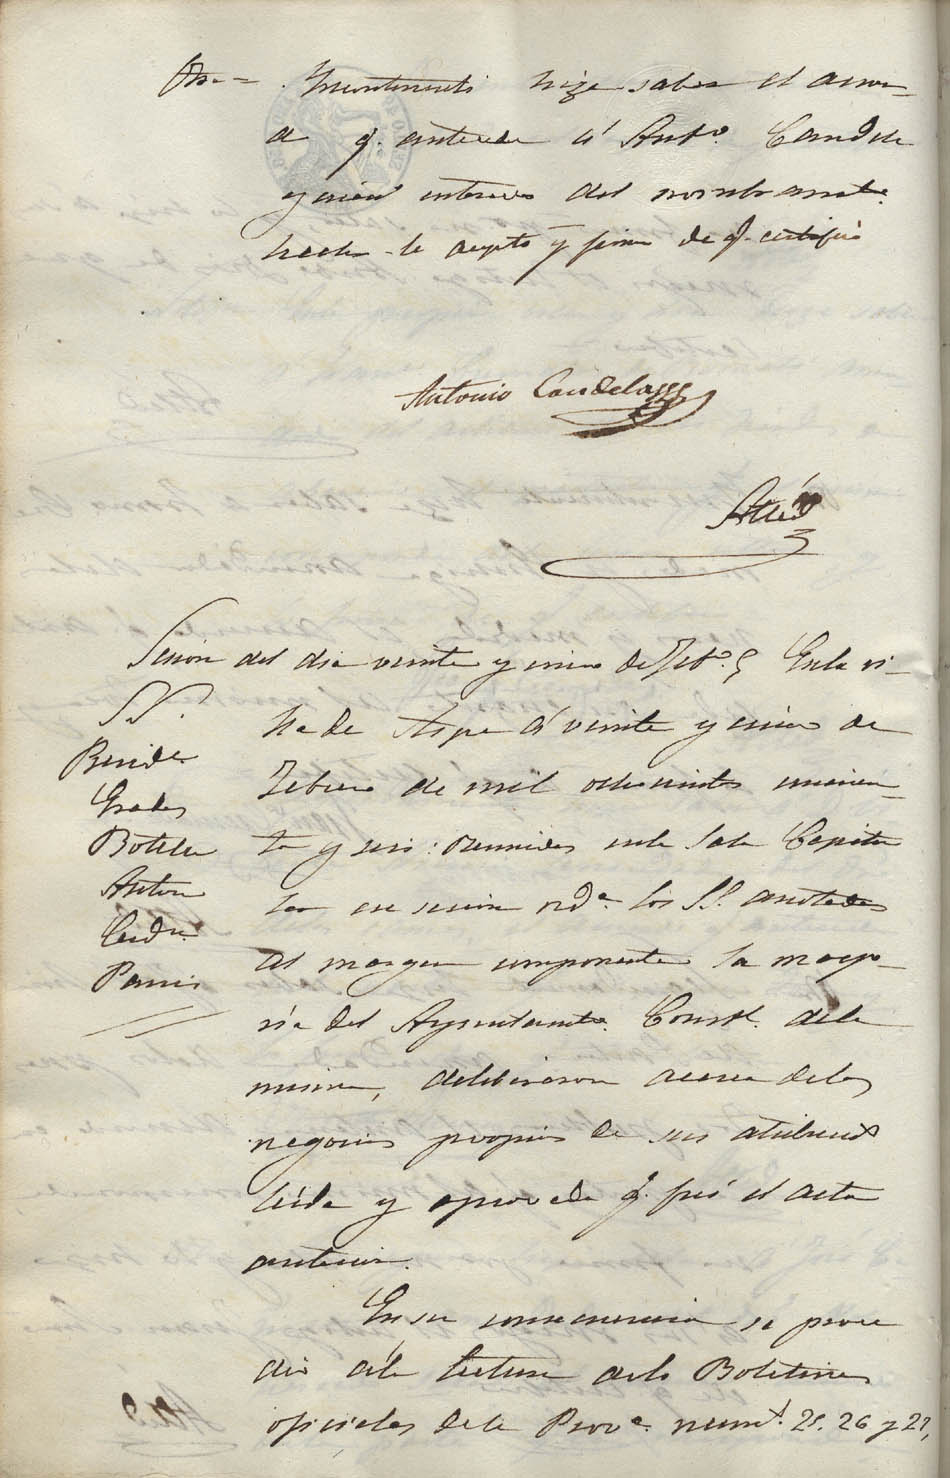 Otra = Incontinenti hize saber el acuer-
do q. antecede á Antº. Candela
y quien enterado del nombramto.
hecho lo aceptó y firma de q. certifico
Antonio Candela
Sesion del dia veinte y cinco de Febº. En la vi-
lla de Aspe á veinte y cinco de
Febrero de mil ochocientos cincuen-
ta y seis: reunidos en la Sala Capitu
lar en sesion ordª. los SS. anotados
al margen componentes la mayo-
ría del Ayuntamto. Constl. de la
misma, deliberaron acerca de los
negocios propios de sus atribucs
leida y aprovada q. fué el acta
anterior.
SS.
Preside
Grades
Botella
Anton
Cerdn.
Pavia
En su consecuencia se proce
dió á la lectura de los Boletines
oficiales de la Provª. nums. 25. 26 y 27,